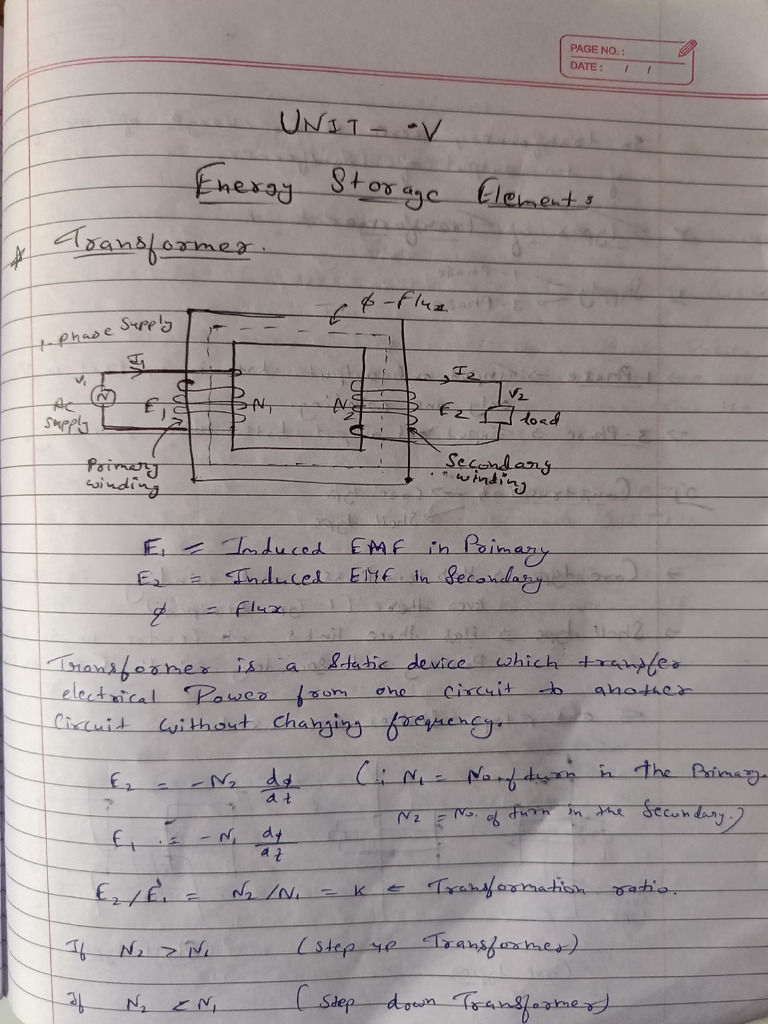 PAGE NO.:
DATE: / /
UNIT - V
Energy Storage Elements
* Transformer.
ϕ - Flux
1-phase Supply
I1
I2
V1
V2
AC
Supply
E1
N1
N2
E2
load
Primary
winding
Secondary
winding
E1 = Induced EMF in Primary
E2 = Induced EMF in Secondary
ϕ = Flux
Transformer is a Static device which transfer
electrical Power from one circuit to another
Circuit without Changing frequency.
E2 = - N2 dϕ/dt (∵ N1 = No. of turn in the Primary.
N2 = No. of turn in the Secondary.)
E1 = - N1 dϕ/dt
E2/E1 = N2/N1 = K ← Transformation ratio.
If N2 > N1 (Step up Transformer)
If N2 < N1 (Step down Transformer)